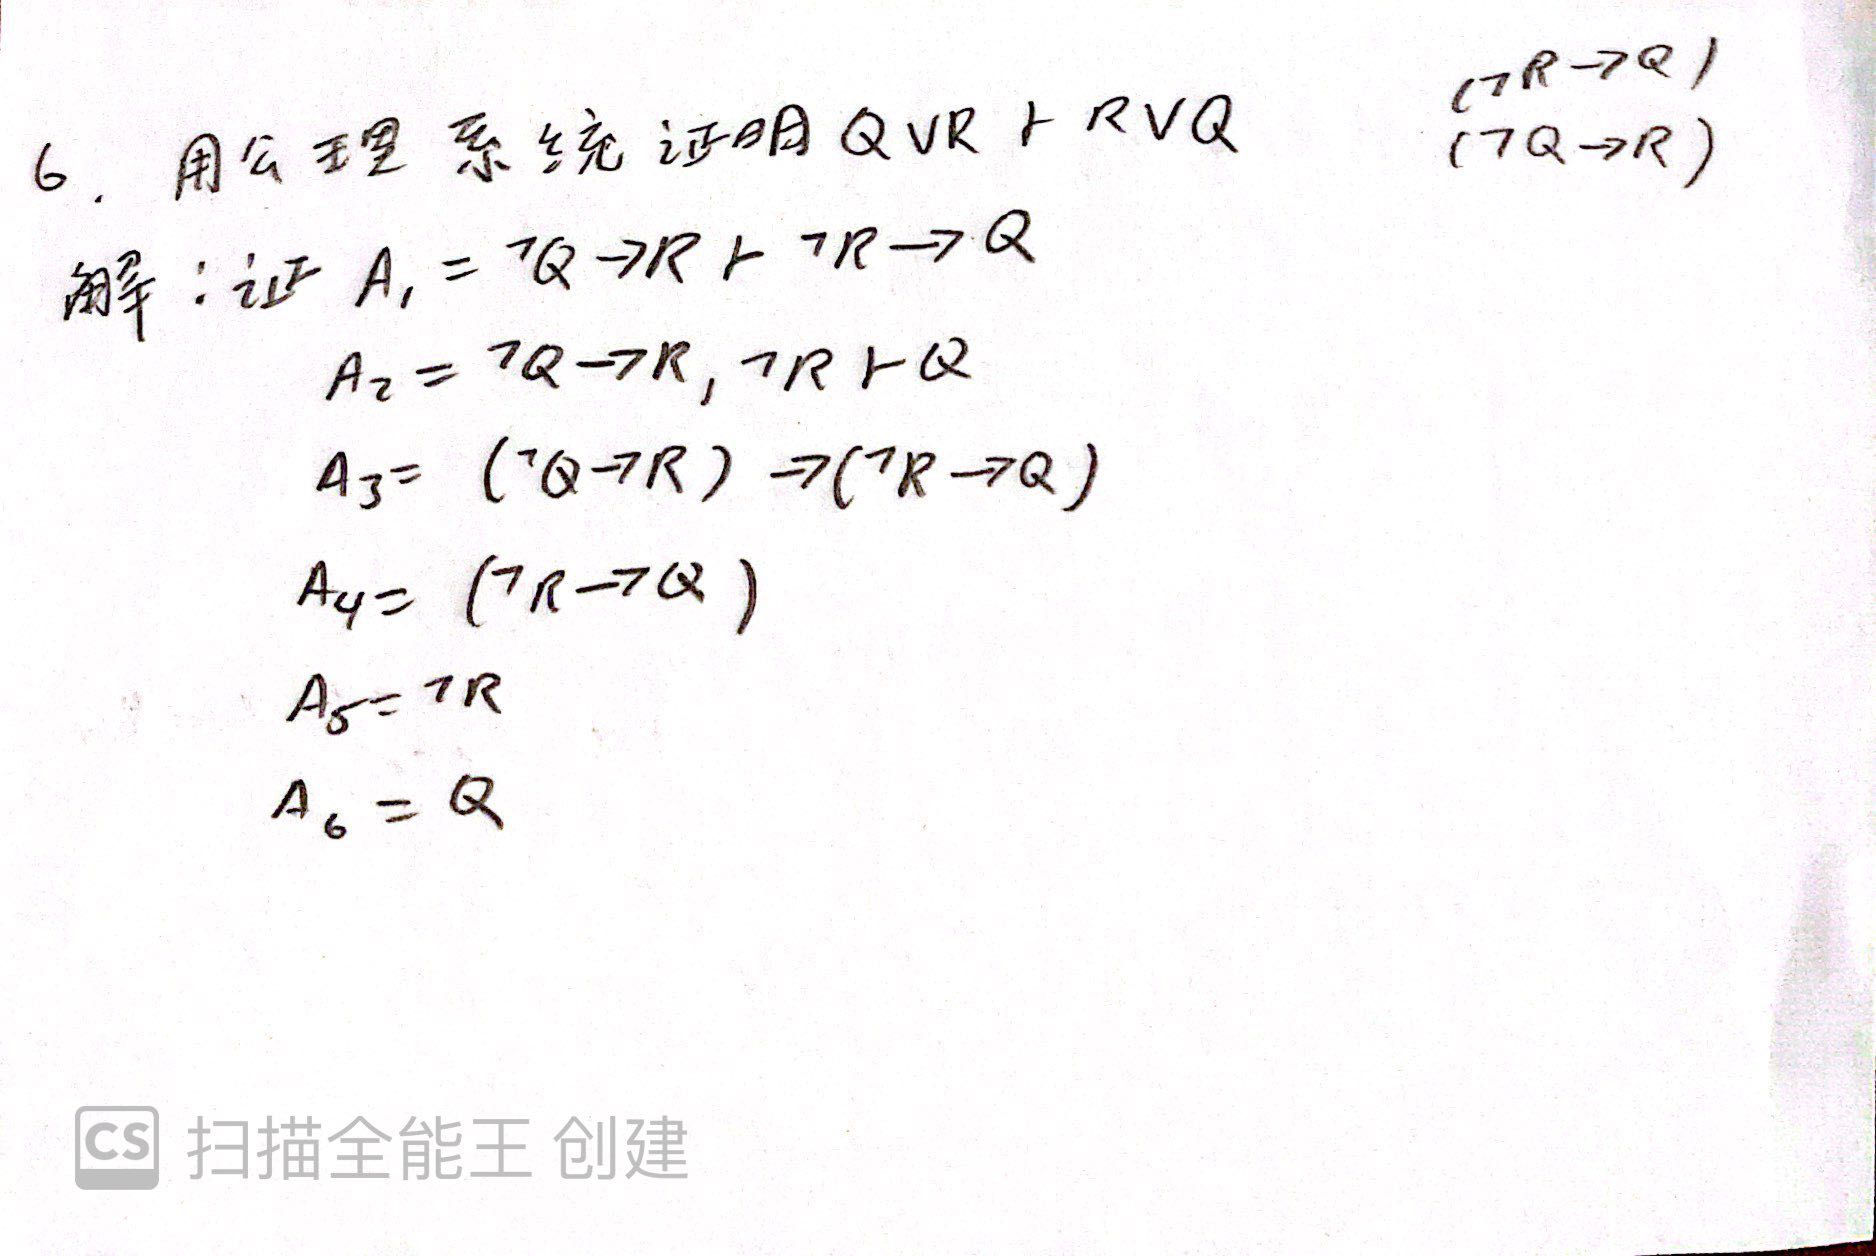 (¬R→Q)
(¬Q→R)
6. 用公理系统证明 Q∨R ⊢ R∨Q
解：证 A₁ = ¬Q→R ⊢ ¬R→Q
A₂ = ¬Q→R, ¬R ⊢ Q
A₃ = (¬Q→R) →(¬R→Q)
A₄ = (¬R→Q)
A₅ = ¬R
A₆ = Q
CS 扫描全能王 创建